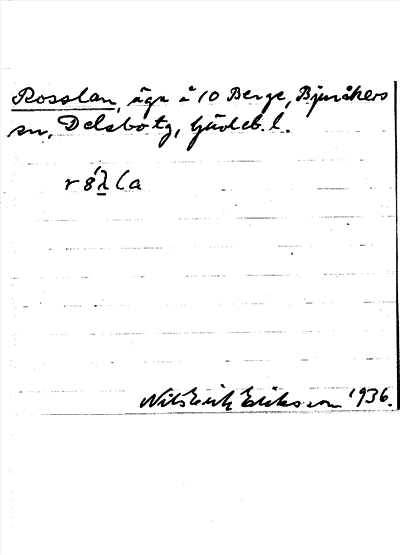 Rosslan, äga å 10 Berge, Bjuråkers
sn, Delsbo tg, Gävleb. l.
Nils Erik Eriksson 1936.